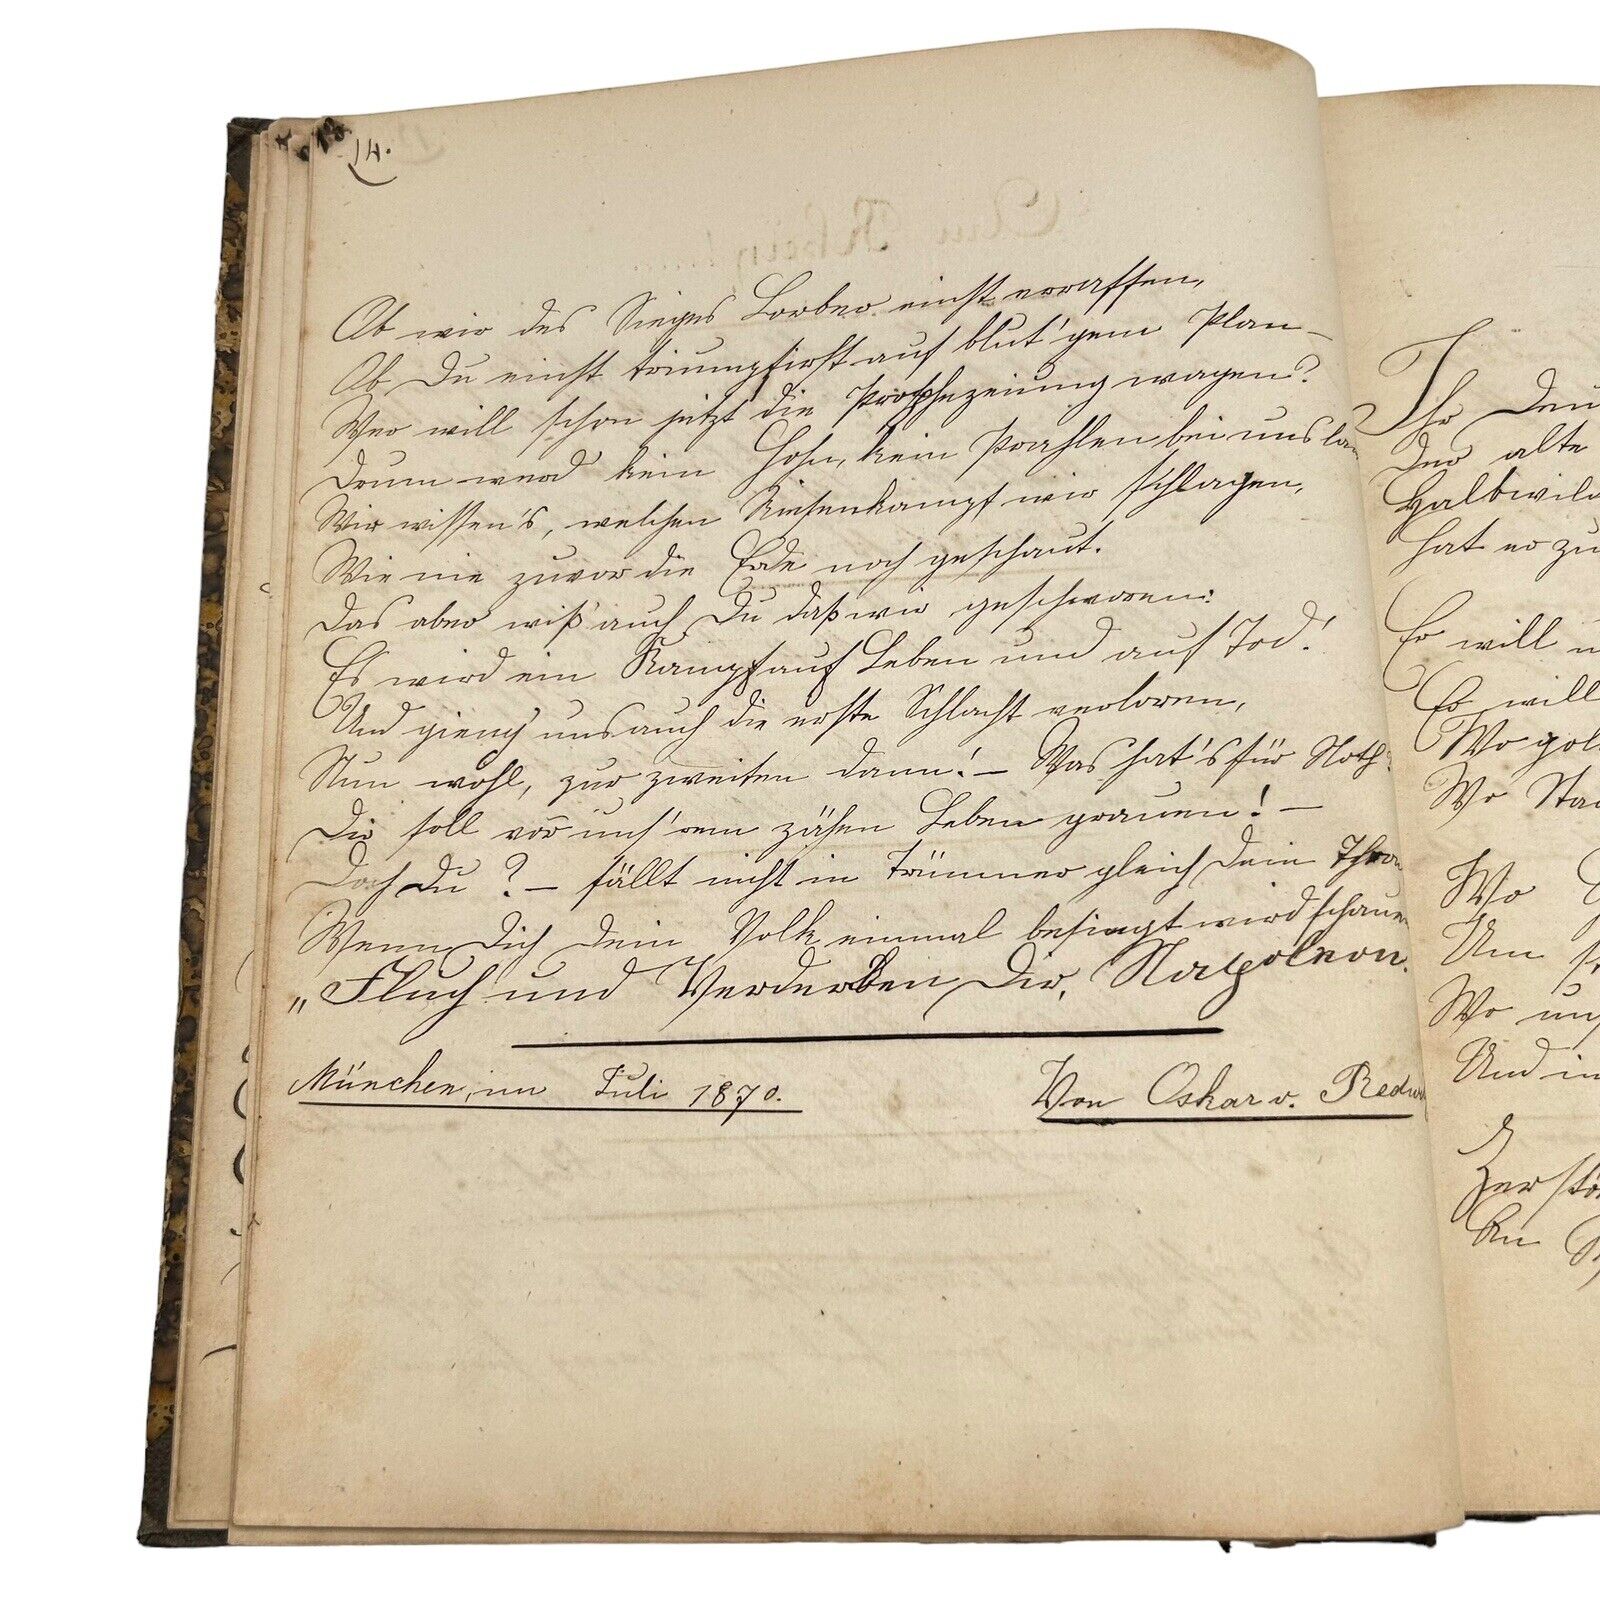 14.
Ob wir des Sieges Lorber einst erraffen,
Ob Du einst triumphirst auf blut'gem Plan –
Wer will schon jetzt die Prophezeiung wagen?
Drum werd kein Hohn, kein Prahlen bei uns lau
Wir wissen's, welchen Riesenkampf wir schlagen,
Wie nie zuvor die Erde noch geschaut.
Das aber wiß' auch Du daß wir geschworen:
Es wird ein Kampf auf Leben und auf Tod!
Und gieng' uns auch die erste Schlacht verloren,
Nun wohl, zur zweiten dann! – Was hat's für Noth?
Dir soll vor uns'rem zähen Leben grauen! –
Doch Du? – fällt nicht in Trümmer gleich Dein Thron
Wenn Dich Dein Volk einmal besiegt wird schauen
„Fluch und Verderben Dir, Napoleon.
München, im Juli 1870.
Von Oskar v. Redw
Ihr Deu
Der alte
Halbwild
Hat er zu
Er will u
Er will
Wo gol
Wo Sta
Wo
Um
Wo uns
Und in
Zerstö
An